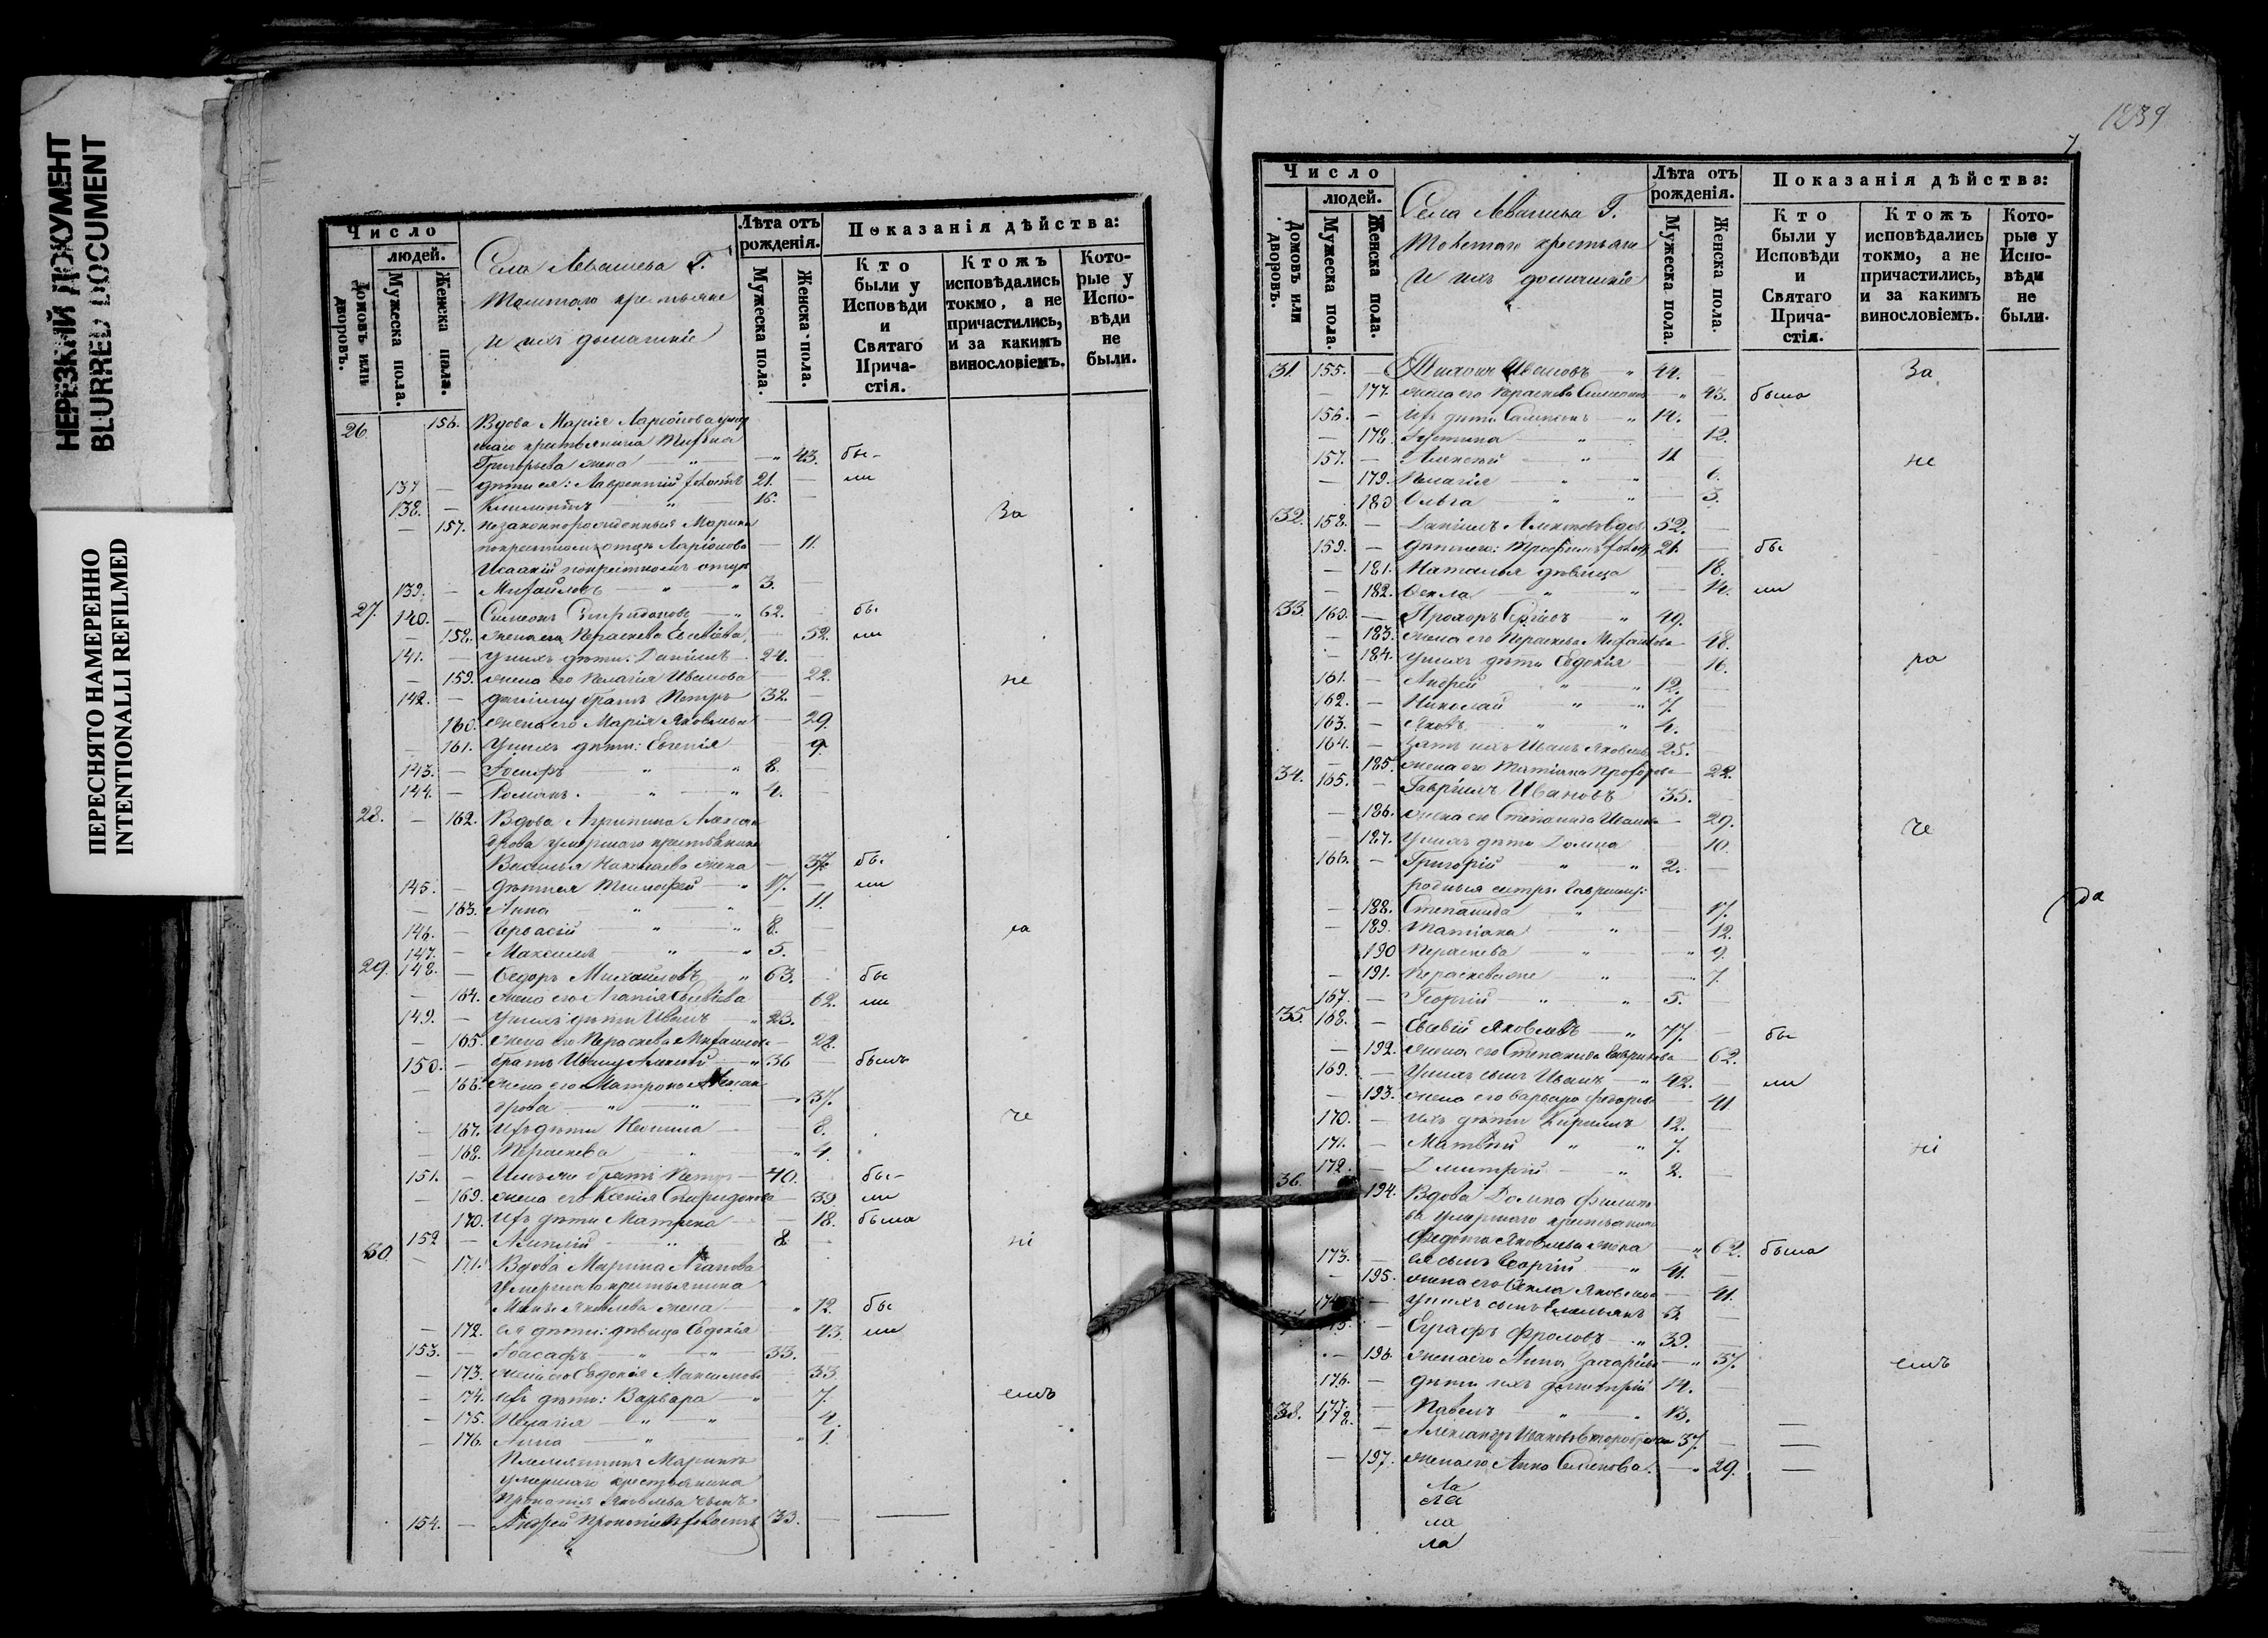 НЕРЕЗКИЙ ДОКУМЕНТ
BLURRED DOCUMENT
ПЕРЕСНЯТО НАМЕРЕННО
INTENTIONALLI REFILMED
Число
людей.
Домовъ или дворовъ.
Мужеска пола.
Женска пола.
Села Левашева Г.
крестьяне
и ихъ домашніе
Лѣта отъ рожденія.
Мужеска пола.
Женска пола.
Показанія дѣйства:
Кто были у Исповѣди и Святаго Прича-стія.
Ктожъ исповѣдались токмо, а не причастились, и за какимъ винословіемъ.
Кото-рые у Испо-вѣди не были.
26. 156. Вдова Марія Ларіонова
крестьянина
Григорьева жена 43. бы-
137 — дѣти ея: Лаврентій холостъ 21. — ли
138. — Климентъ " 16. — За
— 157. незаконнорожденныя Марина
по крестномъ отцѣ Ларіонова — 11.
Исаакій по крестномъ отцѣ
139. — Михайловъ " 3.
27. 140. — Симеонъ Спиридоновъ — " 62. бы-
— 158. жена его Параскева Евсевіева — 52. ли
141. — у нихъ дѣти: Даніилъ — 24. —
— 159. жена его Пелагія Иванова — 22. не
142. — Даніилу братъ Петръ — 32. —
160. жена его Марія Яковлева — 29.
— 161. У нихъ дѣти: Евгенія — 9.
143. — Іосифъ — " — " 8. —
144. — Романъ. — " — " 4. —
28. — 162. Вдова Агрипина Алексан
дрова умершаго крестьянина
Василья Николаева жена — 37. бы-
145. — Дѣти ея Тимофей — " 17. — ли
— 163. Анна — " — " — 11.
146. — — " — " 8. — ла
147. — Максимъ — " — " 5. —
29. 148. — Ѳедоръ Михайловъ — " 63. бы
— 164. жена его Агапія Евсевіева — 62. ли
149. — У нихъ дѣти Иванъ — " 23.
— 165. жена его Параскева Михайлова — 22.
150. — братъ Ивану Алексѣй — " 36 — былъ
— 166. жена его Матрона Алексан
дрова — " — " — " 37.
— 167. Ихъ дѣти — 8. че
— 168. Параскева — " — " 4.
151. — братъ Петръ — 40. бы-
— 169. жена его Ксенія Спиридонова — 39. ли
170. Ихъ дѣти Матрена — 18. была
152 — " 8 — ні
30. — 171. Вдова Марина Агапова
Умершаго крестьянина
Яковлева жена — " 72. бы
— 172. ея дѣти: дѣвица Евдокія 43. ли
153. — Іоасафъ — " — " 33. —
— 173. жена его Евдокія Максимова — 33.
— 174. Ихъ дѣти: Варвара — " 7. емъ
— 175. Пелагія — " — " 4.
— 176. Анна — " — " 1.
Племянникъ Марины
умершаго крестьянина
Прокопія Яковлева сынъ
154. — Андрей Прокопіевъ холостъ 33. — ———
1239
7
Число
людей.
Домовъ или дворовъ.
Мужеска пола.
Женска пола.
Села Левашева Г.
крестьяне
и ихъ домашніе
Лѣта отъ рожденія.
Мужеска пола.
Женска пола.
Показанія дѣйства:
Кто были у Исповѣди и Святаго Прича-стія.
Ктожъ исповѣдались токмо, а не причастились, и за какимъ винословіемъ.
Кото-рые у Испо-вѣди не были.
31. 155. — Тихонъ Ивановъ — " 44. — За
— 177. жена его Параскева Симеонова — " 43. была
156. — Ихъ дѣти Симеонъ — " 14. —
— 178. Іустина — " — 12.
157. — Алексѣй — " 11 — не
— 179. Пелагія — " — " — 6.
180. Ольга — " — " — 3.
32. 158. — Даніилъ вдов. 52. —
159. — Дѣти его: Трофимъ холост. 21. — бы
— 181. Наталья дѣвица — 18.
— 182. Ѳекла — " — " — 14. ли
33. 160. — Прохоръ — " 49.
— 183. жена его Параскева Михайлова — 48.
— 184. У нихъ дѣти Евдокія — 16. ра
161. — Андрей " — " 12. —
162. — Николай — " — " 7. —
163. — Яковъ — " " 4. —
164. — Зять ихъ Иванъ Яковлевъ 25. —
— 185. жена его Татіана Прохорова — 22.
34. 165. — Гавріилъ Ивановъ 35. —
— 186. жена его Степанида Иванова — 29.
— 187. У нихъ дѣти Домна — 10. че
166. — Григорій " — " 2. —
родныя сестры Гавріилу:
— 188. Степанида — " — — 17. да
— 189. Татіана — " — 12.
190 Параскева — " — " 9.
— 191. — " — " 7.
167. — Георгій — " — " 5. —
35. 168. — Евсевій Яковлевъ — " 77. — бы
— 192. жена его Степанида — 62.
169. — У нихъ сынъ Иванъ — " 42. — ли
— 193. жена его Варвара Ѳедорова — 41
170. — Ихъ дѣти Кирилъ 12. —
171. — Матвѣй " " 7. ні
172. — Дмитрій — " 2. —
36. 194. Вдова Домна
умершаго крестьянина
Федота Яковлева жена — " 62. была
173. — ея сынъ Георгій " 41. —
— 195. жена его Ѳекла Яковлева — 41.
174. — у нихъ сынъ Емельянъ 5.
37. 175. — Евграфъ Фроловъ — " 39. —
— 196. жена его Анна Захаріева — " 37. емъ
176. — дѣти ихъ Димитрій 14.
177. — Павелъ " — " 13.
38. 178. — Александръ Ивановъ 37. — —
— 197. жена его Анна Семенова. — " 29. —
Ла
ла
ла
ла